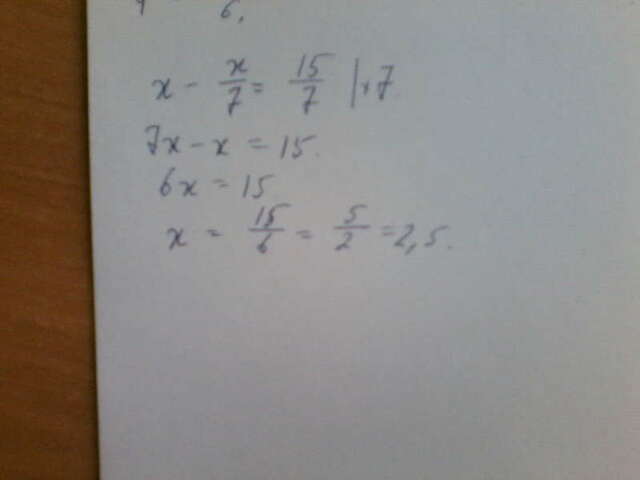 6.
x - x/7 = 15/7 | × 7
7x - x = 15.
6x = 15
x = 15/6 = 5/2 = 2,5.